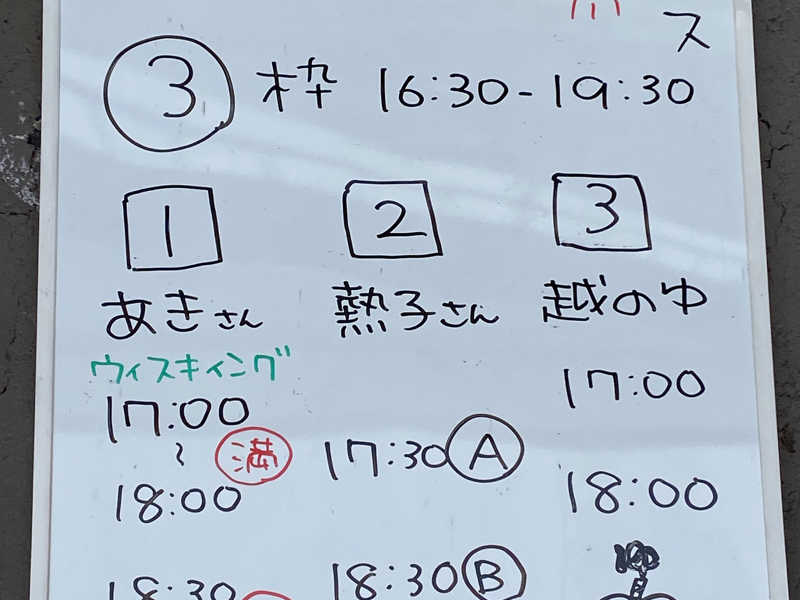 ス
③枠 16:30-19:30
1 2 3
あきさん 熱子さん 越のゆ
ウィスキィング
17:00 17:00
満 17:30 A
~
18:00 18:00
18:30 18:30 B